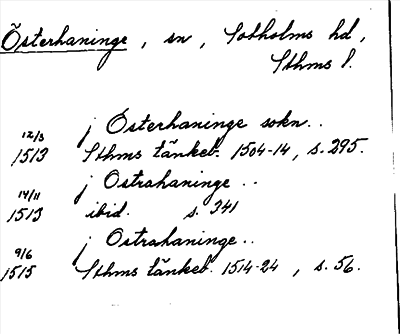 Österhaninge, sn, Sotholms hd,
Sthms l.
12/3 j Österhaninge sokn..
1513 Sthms tänkeb. 1504-14, s. 295.
14/11 j Ostrahaninge ..
1513 ibid. s. 341
9/6 j Ostrahaninge..
1515 Sthms tänkeb. 1514-24, s. 56.